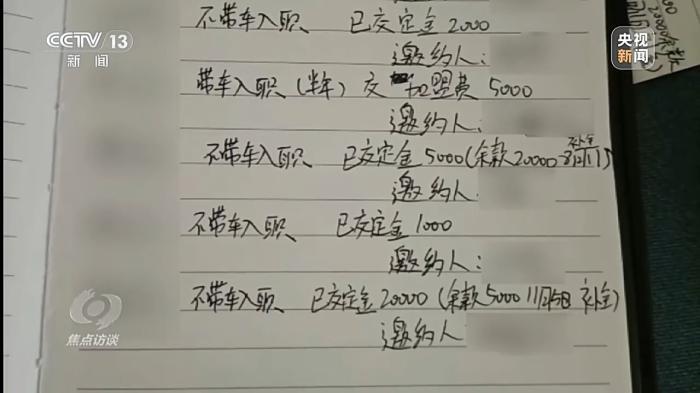 CCTV 13
新闻
央视
新闻
不带车入职、已交定金2000
邀约人:
带车入职(半年)交加盟费5000
邀约人:
不带车入职、已交定金5000(余款20000
补全
邀约人:
不带车入职、已交定金1000
邀约人:
不带车入职、已交定金20000(余款5000 11月5日补全)
邀约人
焦点访谈